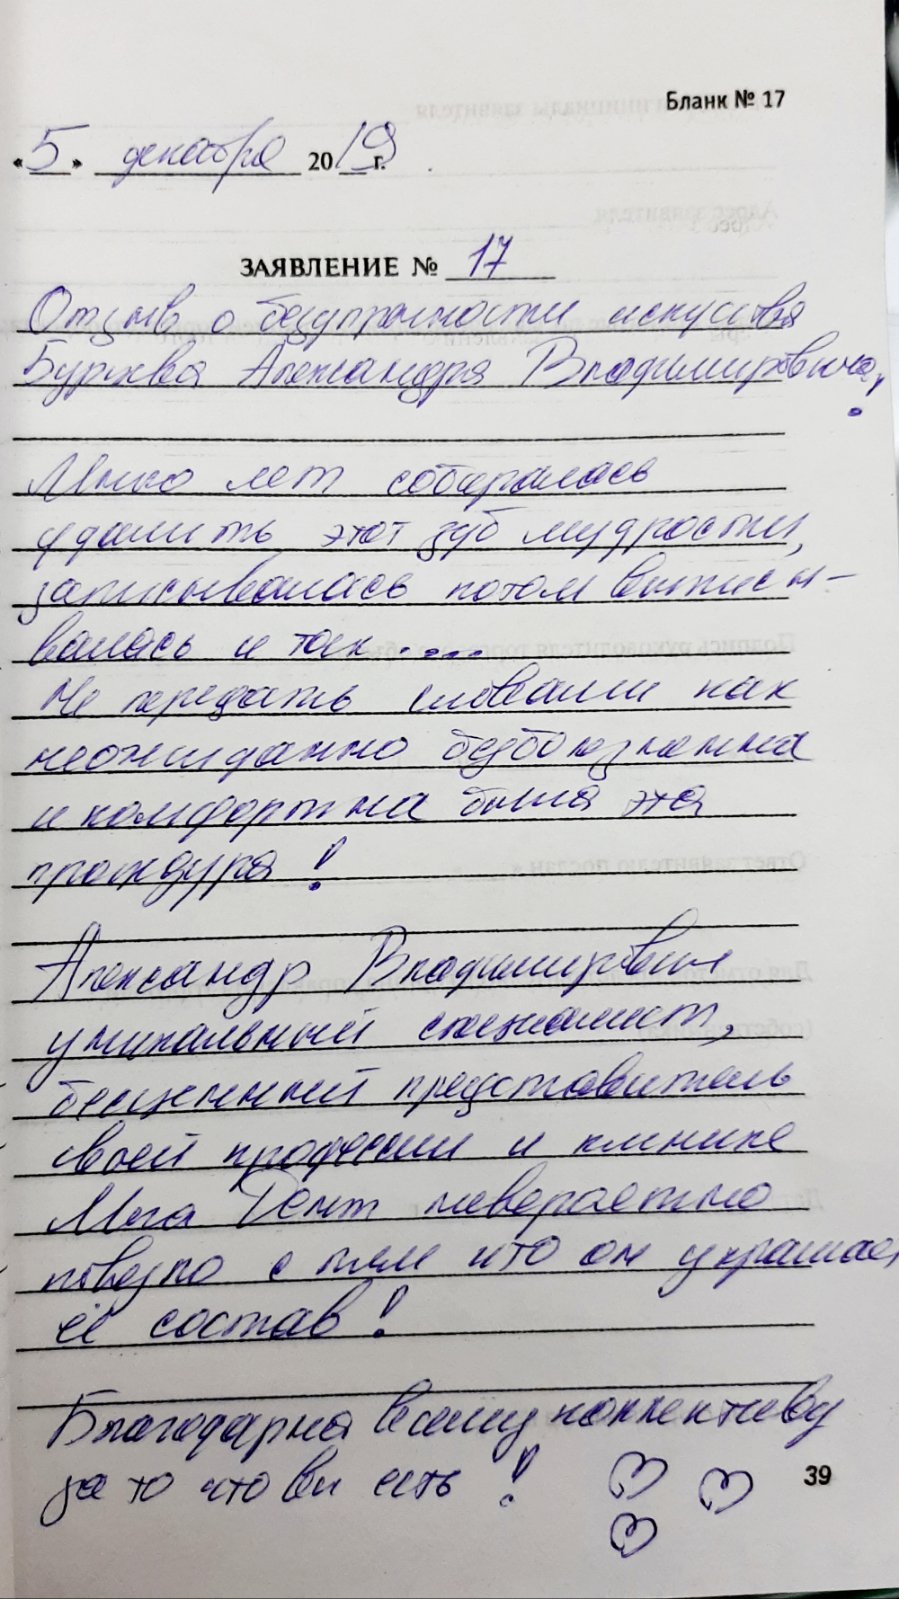 Бланк № 17
«5» декабря 2019 г.
ЗАЯВЛЕНИЕ № 17
Отзыв о безупречности искусства
Александра Владимировича!
Много лет собиралась
удалить этот зуб мудрости,
записывалась потом выписы-
валась и так....
Не передать словами как
неожиданно безболезненна
и комфортна была эта
процедура!
Александр Владимирович
уникальный специалист,
бесценный представитель
своей профессии и клинике
Мега Дент невероятно
повезло с тем что он украшает
её состав!
Благодарна всему коллективу
за то что вы есть!
39